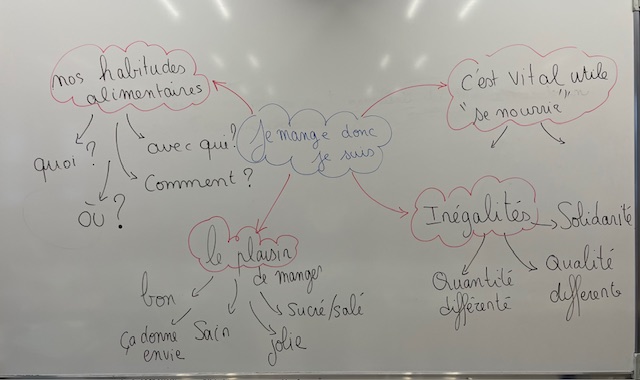 nos habitudes
alimentaires
quoi ?
OÙ ?
avec qui ?
Comment ?
Je mange donc
je suis
c'est vital utile
"se nourrir"
le plaisir
de manger
bon
ça donne
envie
Sain
jolie
Sucré/salé
Inégalités
Solidarité
Quantité
différenté
Qualité
differente